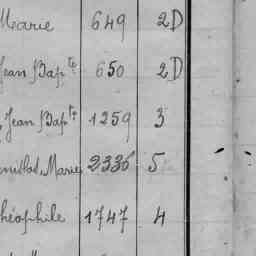 Marie 649 2D
Jean Bapte 650 2D
Jean Bapte 1259 3
Marie 2336 5
héophile 1747 4